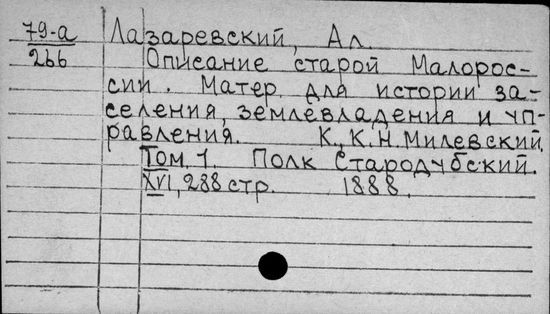 79-а Лазаревский, Ал.
266 Описание старой Малорос-
сии. Матер. для истории за-
селения, землевладения и уп-
равления. К., К.Н.Милевский.
Том 1. Полк Стародубский.
XVI, 288 стр. 1888.